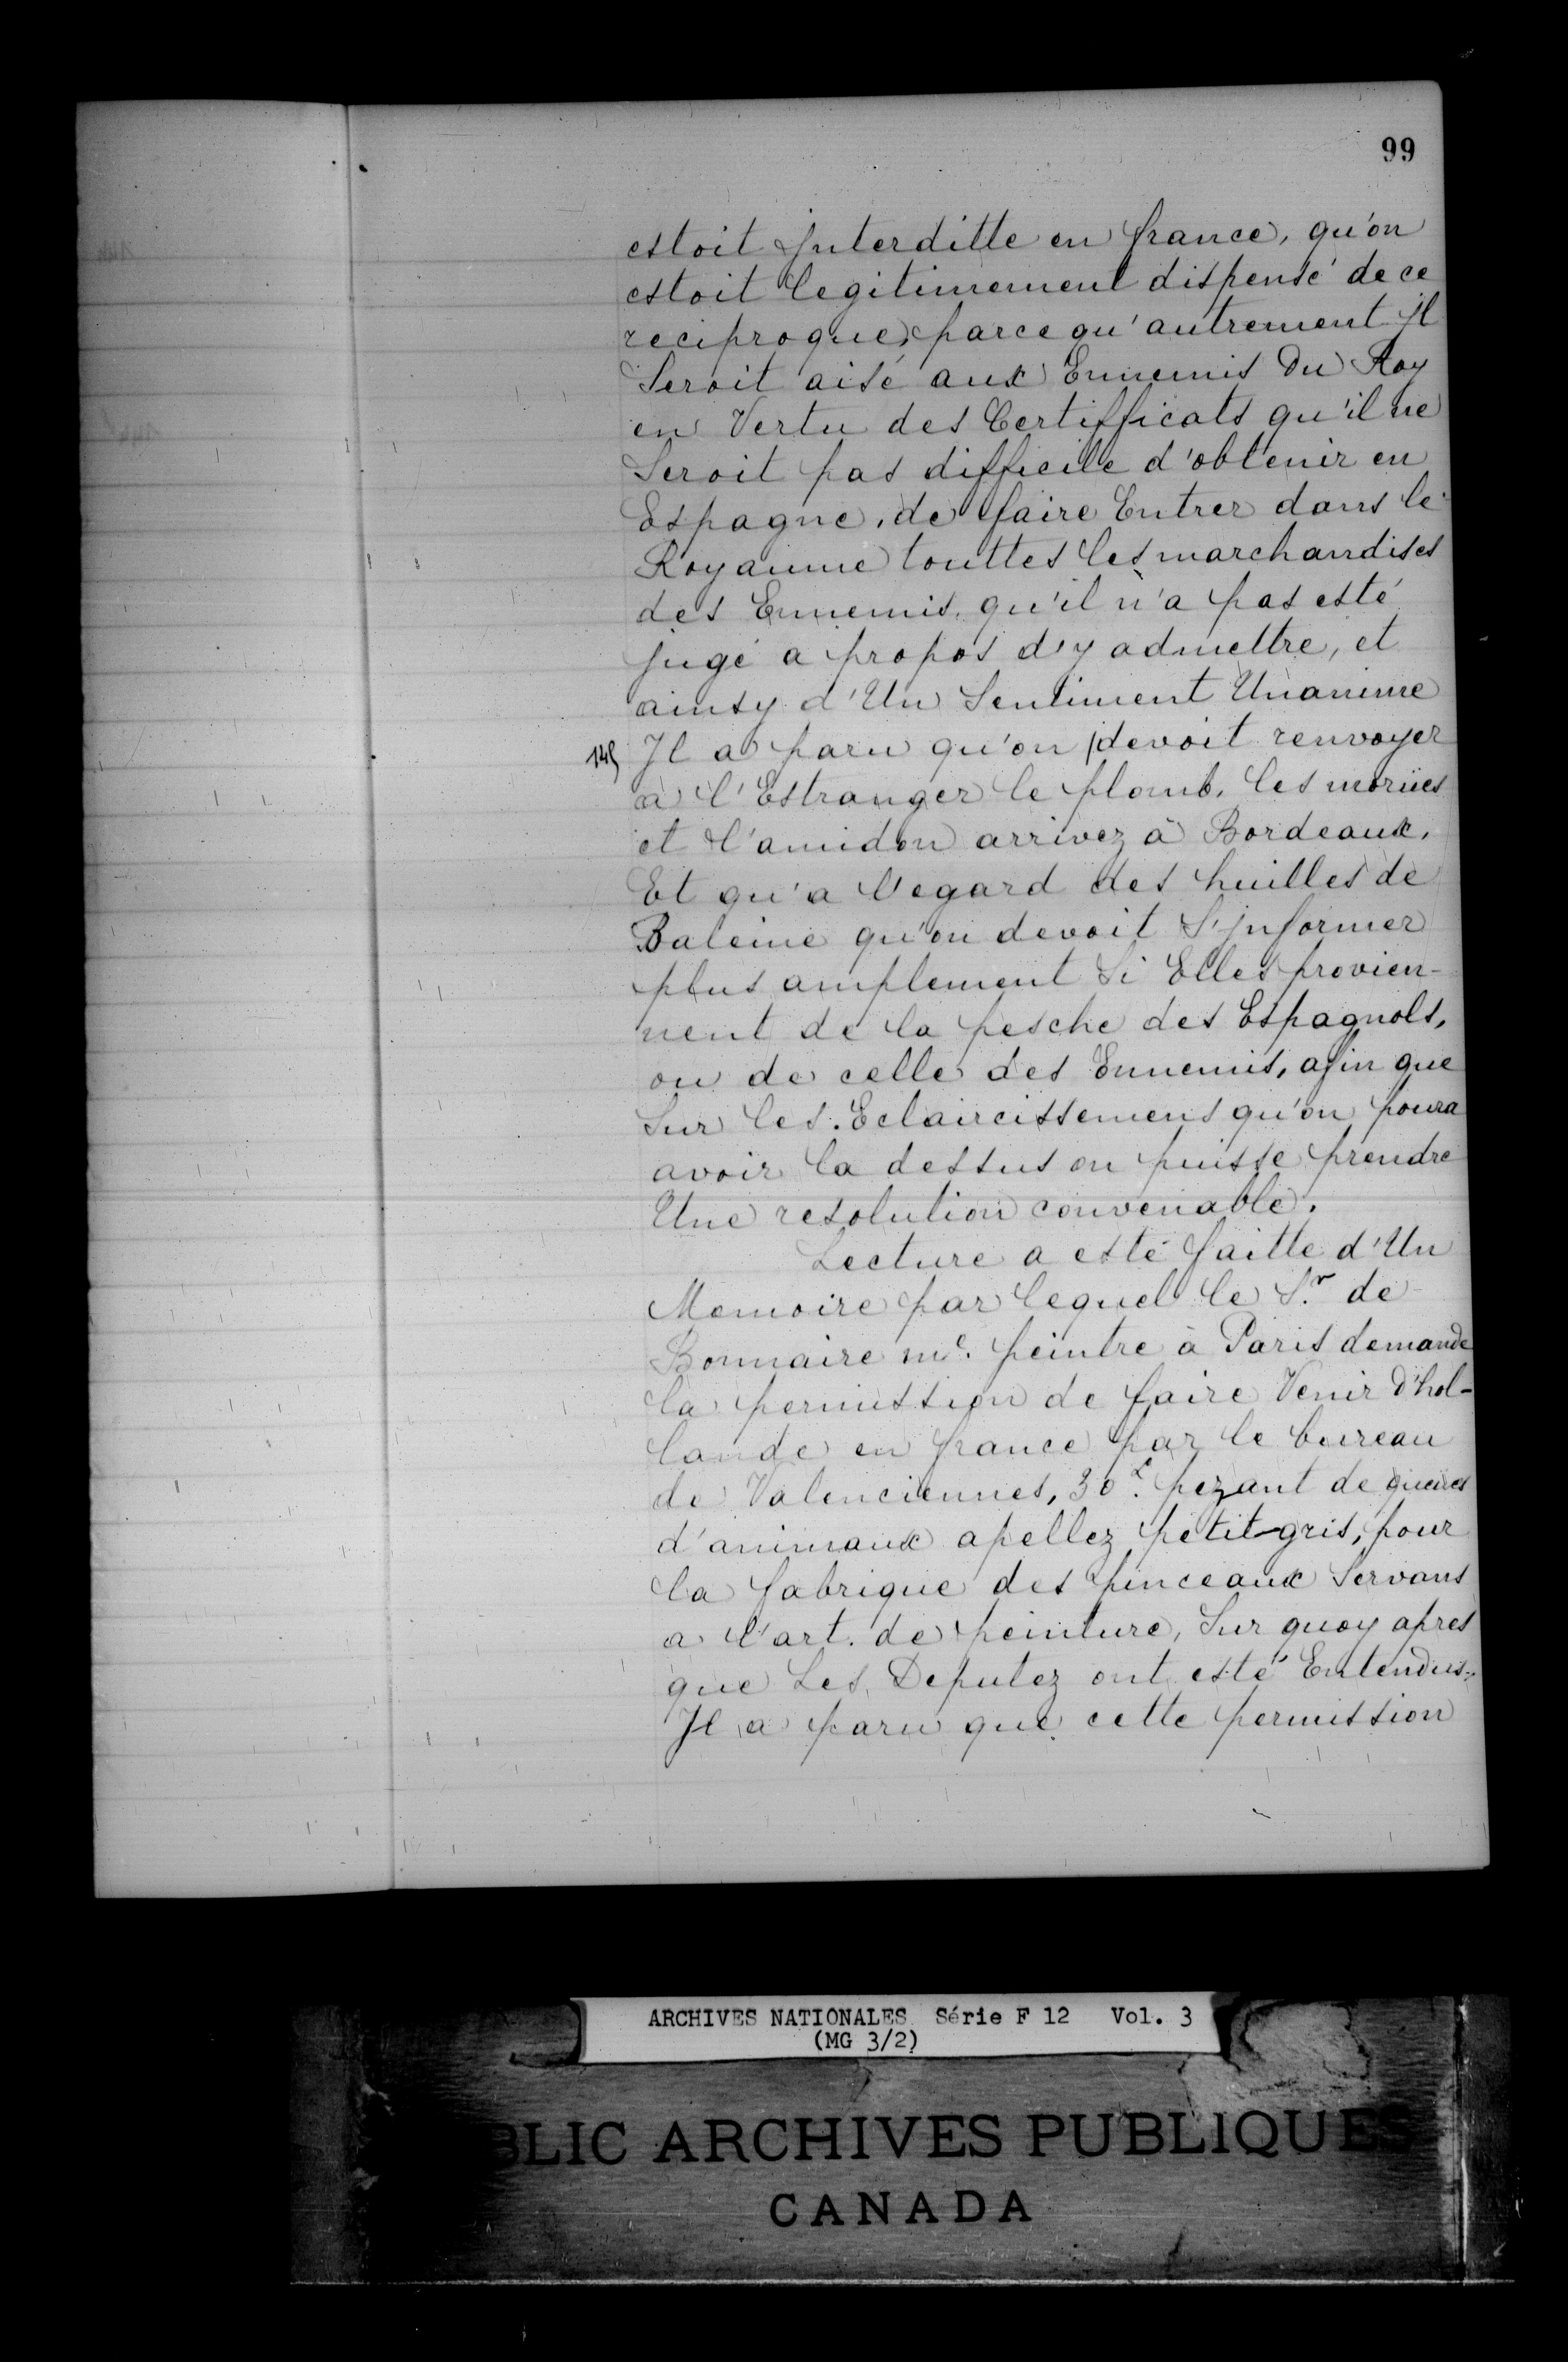 99
estoit Jnterditte en france, qu'on
estoit legitimement dispensé de ce
reciproque, parce qu'autrement jl
Seroit aisé aux Ennemis du Roy
en Vertu des Certifficats qu'il ne
Seroit pas difficile d'obtenir en
Espagne, de faire Entrer dans le
Royaume touttes les marchandises
des Ennemis qu'il n'a pas esté
jugé a propos d'y admettre, et
ainsy d'Un Sentiment Unanime
145 Jl a paru qu'on devoit renvoyer
a l'Estranger le plomb, les morües
et l'amidon arrivez à Bordeaux,
Et qu'a l'egard des huilles de
Baleine qu'on devoit S'jnformer
plus amplement Si Elles provien-
nent de la pesche des Espagnols,
ou de celle des Ennemis, afin que
Sur les Eclaircissemens qu'on poura
avoir la dessus on puisse prendre
Une resolution convenable.
Lecture a esté faitte d'Un
Memoire par lequel le S.r de
Bonnaire me. peintre à Paris demande
la permission de faire Venir d'hol-
lande en france par le bureau
de Valenciennes, 30 l. pezant de queües
d'animaux apellez petit-gris, pour
la fabrique des pinceaux Servans
a l'art. de peinture, Sur quoy apres
que Les Deputez ont esté Entendus,
Jl a paru que cette permission
ARCHIVES NATIONALES Série F 12 Vol. 3
(MG 3/2)
BLIC ARCHIVES PUBLIQUES
CANADA